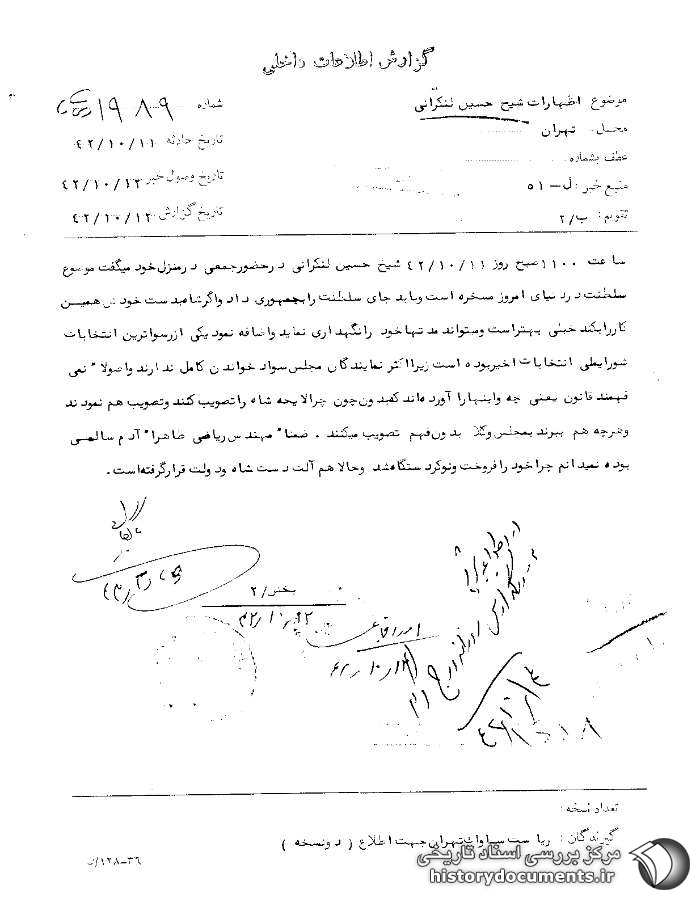 گزارش اطلاعات داخلی
موضوع اظهارات شیخ حسین لنکرانی
شماره ۱۹۸۰۹
محل: تهران
تاریخ حادثه ۴۲/۱۰/۱۱
عطف بشماره
تاریخ وصول خبر ۴۲/۱۰/۱۲
منبع خبر: ل–۵۱
تاریخ گزارش ۴۲/۱۰/۱۲
تقویم: ب/۲
ساعت ۱۱۰۰ صبح روز ۴۲/۱۰/۱۱ شیخ حسین لنکرانی در حضور جمعی در منزل خود میگفت موضوع
سلطنت در دنیای امروز مسخره است و باید جای سلطنت را بجمهوری داد و اگر شاه بدست خودش همین
کار را بکند خیلی بهتر است و میتواند مدتها خود را نگهداری نماید و اضافه نمود یکی از رسواترین انتخابات
شورایملی انتخابات اخیر بوده است زیرا اکثر نمایندگان مجلس سواد خواندن کامل ندارند و اصولا" نمی
فهمند قانون یعنی چه و اینها را آورده‌اند که بدون چون چرا لایحه شاه را تصویب کنند و تصویب هم نمودند
و هرچه هم ببرند بمجلس وکلا بدون فهم تصویب میکنند . ضمنا" مهندس ریاضی ظاهرا" آدم سالمی
بوده نمیدانم چرا خود را فروخت و نوکر دستگاه شد و حالا هم آلت دست شاه و دولت قرار گرفته است .
بخش/۲
تعداد نسخه:
گیرندگان: ریاست ساواک تهران جهت اطلاع ( دو نسخه )
۱۲۸–۳۶
مرکز بررسی اسناد تاریخی
historydocuments.ir